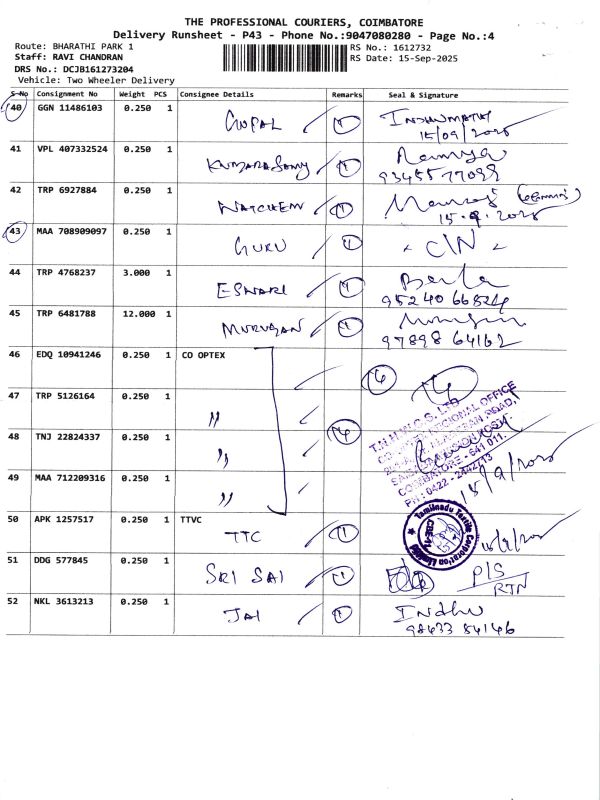 THE PROFESSIONAL COURIERS, COIMBATORE
Delivery Runsheet - P43 - Phone No.:9047080280 - Page No.:4
Route: BHARATHI PARK 1
RS No.: 1612732
Staff: RAVI CHANDRAN
RS Date: 15-Sep-2025
DRS No.: DCJB161273204
Vehicle: Two Wheeler Delivery
S-No Consignment No Weight PCS Consignee Details Remarks Seal & Signature
40 GGN 11486103 0.250 1 GOPAL 1 INDHUMATHI
15/09/2025
41 VPL 407332524 0.250 1 KUMARASAMY 1 Ramya
42 TRP 6927884 0.250 1 1
15.9.2025
43 MAA 708909097 0.250 1 GURU 1 C/N
44 TRP 4768237 3.000 1 ESWARI 1
45 TRP 6481788 12.000 1 MURUGAN 1
97898 64162
46 EDQ 10941246 0.250 1 CO OPTEX
47 TRP 5126164 0.250 1 "
48 TNJ 22824337 0.250 1 "
49 MAA 712209316 0.250 1 "
REGIONAL OFFICE
COIMBATORE - 641 011.
PH: 0422 - 2442113
15/9/2025
50 APK 1257517 0.250 1 TTVC
TTC 1
Tamilnadu Textile Corporation Limited
51 DDG 577845 0.250 1 SRI SAI 1 P/S
RTN
52 NKL 3613213 0.250 1 JAI 1 Indhu
98433 84146